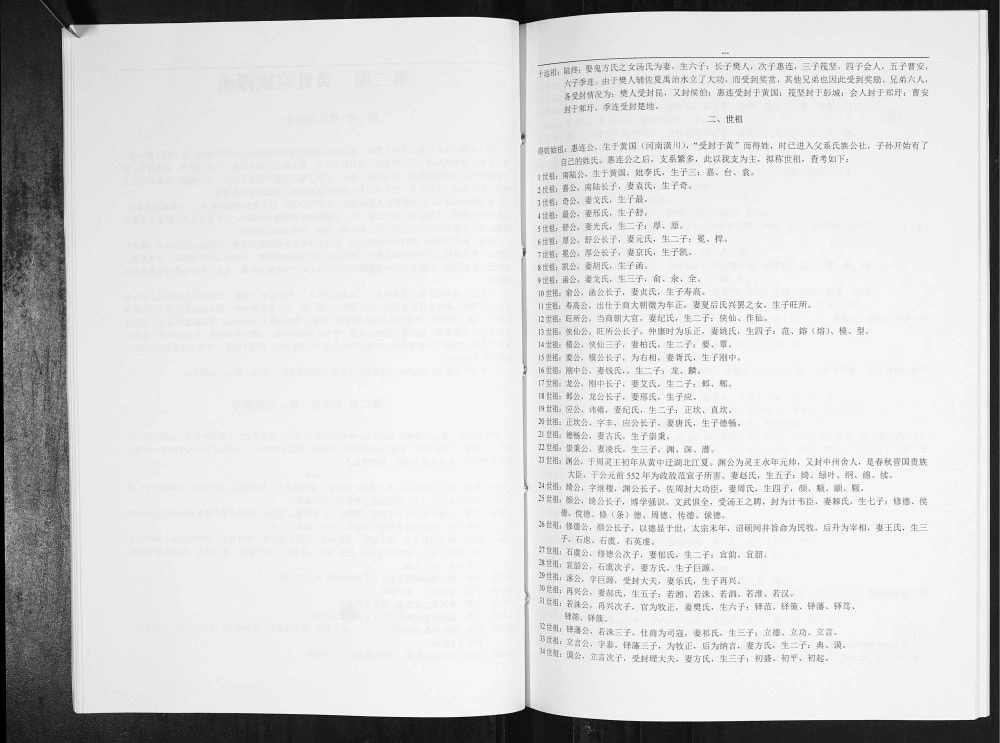 十远祖：陆终；娶鬼方氏之女汤氏为妻，生六子：长子樊人，次子惠连，三子篯坚，四子会人，五子曹安，
六子季连。由于樊人辅佐夏禹治水立了大功，而受到奖赏，其他兄弟也因此受到奖励。兄弟六人，
各受封情况为：樊人受封昆，又封侯伯；惠连受封于黄国；篯坚封于彭城；会人封于郑圩；曹安
封于邾圩、季连受封楚地。
二、世祖
得姓始祖：惠连公，生于黄国（河南潢川），“受封于黄”而得姓，时已进入父系氏族公社，子孙开始有了
自己的姓氏。惠连公之后，支系繁多，此以我支为主，拟称世祖，查考如下：
1世祖：南陆公，生于黄国，妣李氏，生子三：嘉、台、袁。
2世祖：嘉公，南陆长子，妻袁氏，生子奇。
3世祖：奇公，妻戈氏，生子最。
4世祖：最公，妻邢氏，生子舒。
5世祖：舒公，妻光氏，生二子：厚、原。
6世祖：厚公，舒公长子，妻元氏，生二子：冕、捍。
7世祖：冕公，厚公长子，妻京氏，生子凯。
8世祖：凯公，妻胡氏，生子函。
9世祖：函公，妻戈氏，生三子，俞、汆、全。
10世祖：俞公，函公长子，妻贞氏，生子寿高。
11世祖：寿高公，出仕于商大朝微为车正，妻夏后氏兴罢之女，生子旺所。
12世祖：旺所公，当商朝大官，妻纪氏，生二子：侠仙、作仙。
13世祖：侠仙公，旺所公长子，仲康时为乐正，妻姚氏，生四子：范、鎔（熔）、模、型。
14世祖：模公，侠仙三子，妻柏氏，生二子：婪、覃。
15世祖：婪公，模公长子，为右相，妻胥氏，生子刚中。
16世祖：刚中公，妻钱氏，，生二子：龙、麟。
17世祖：龙公，刚中长子，妻艾氏，生二子：邺、郫。
18世祖：邺公，龙公长子，妻邢氏，生子应。
19世祖：应公，讳雍，妻纪氏，生二子：正坎、直坎。
20世祖：正坎公，字丰，应公长子，妻唐氏，生子德畅。
21世祖：德畅公，妻古氏，生子崇秉。
22世祖：崇秉公，妻凌氏，生三子，渊、深、潜。
23世祖：渊公，于周灵王初年从黄中迁湖北江夏。渊公为灵王永年元帅，又封中州舍人，是春秋晋国贵族
大臣，于公元前552年为政敌范宣子所害。妻赵氏，生五子：绮、绿叶、纲、绵、续。
24世祖：绮公，字继稷，渊公长子，佐周封大功臣，妻周氏，生四子，颜、顺、顾、颗。
25世祖：颜公，绮公长子，博学强识，文武俱全，受汤王之聘，封为计韦臣，妻赖氏，生七子：修德、侯
德、傥德、倏（条）德、周德、传德、俵德。
26世祖：修德公，颜公长子，以德显于世，太宗末年，诏硕问并旨命为民牧，后升为宰相，妻王氏，生三
子，石虑、石虞、石英虔。
27世祖：石虞公，修德公次子，妻郁氏，生二子：宜韵、宜韶。
28世祖：宜韶公，石虞次子，妻方氏，生子巨源。
29世祖：涿公，字巨源，受封大夫，妻乐氏，生子再兴。
30世祖：再兴公，妻郝氏，生五子：若湘、若洙、若泗、若淮、若汉。
31世祖：若洙公，再兴次子，官为牧正，妻樊氏，生六子：铎范、铎策、铎藩、铎笃、
铎筛、铎筱。
32世祖：铎藩公，若洙三子，仕商为司寇，妻祁氏，生三子：立德、立功、立言。
33世祖：立言公，字泰，铎藩三子，为牧正，后为纳言，妻方氏，生二子：典、谟。
34世祖：谟公，立言次子，受封埋大夫，妻方氏，生三子；初盛、初平、初起。